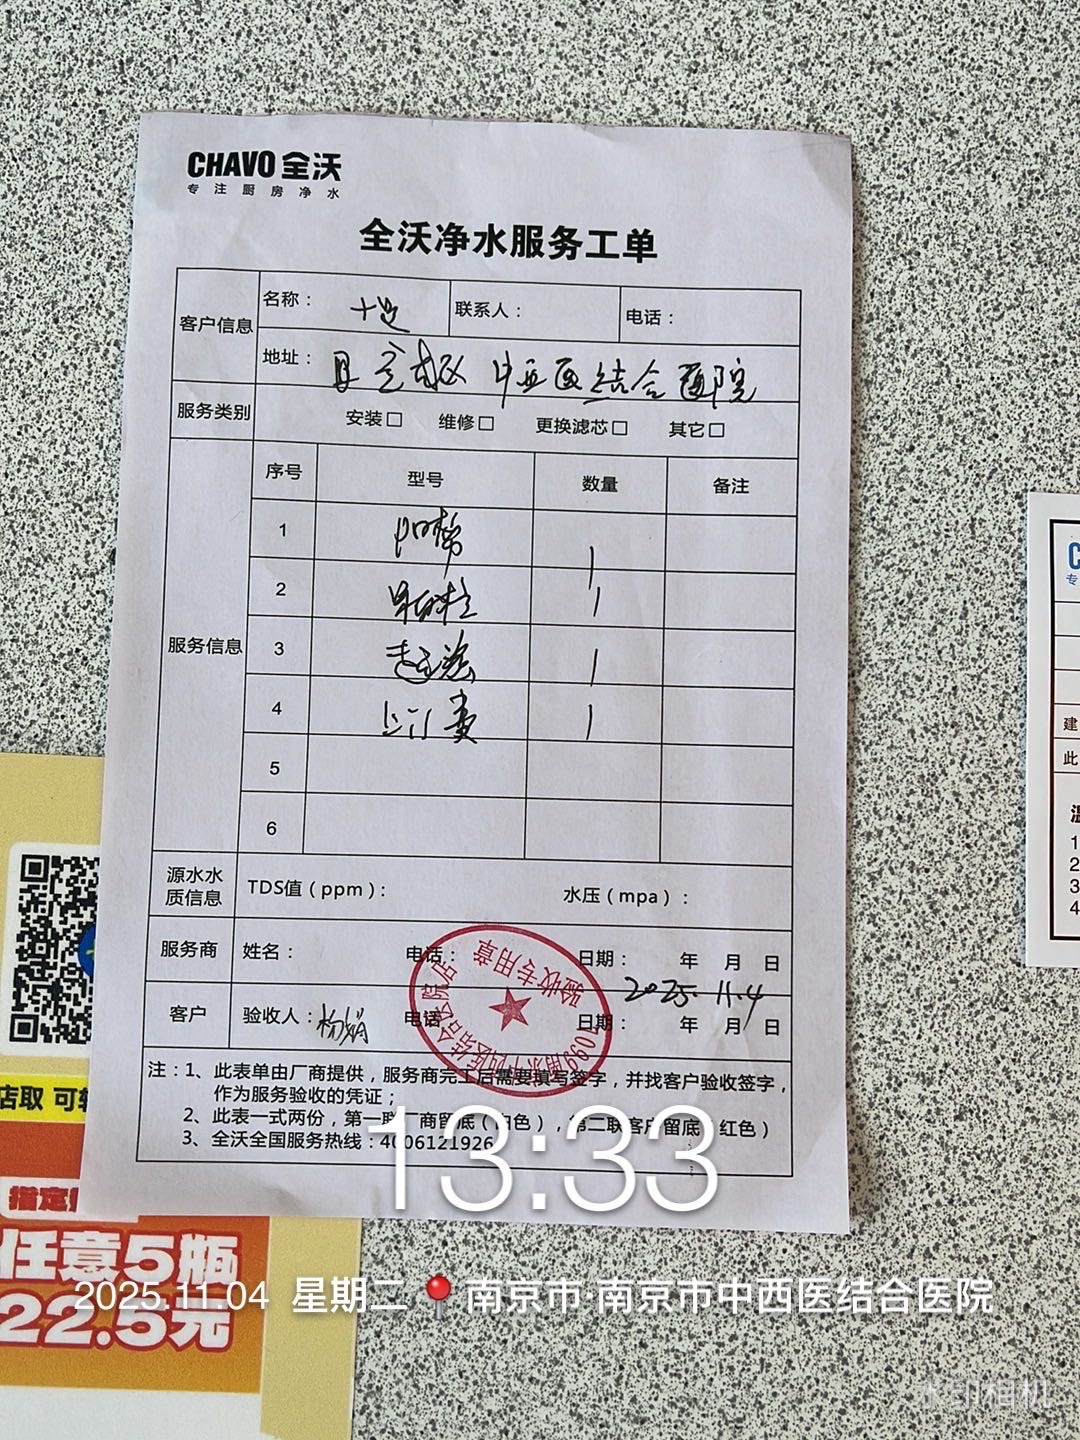 CHAVO 全沃
专注厨房净水
全沃净水服务工单
客户信息
名称： 十足
联系人：
电话：
地址： 中西医结合医院
服务类别
安装□ 维修□ 更换滤芯□ 其它□
服务信息
序号 型号 数量 备注
1 1
2 1
3 1
4 上门费 1
5
6
源水水质信息
TDS值（ppm）：
水压（mpa）：
服务商
姓名：
电话：
日期： 年 月 日
2025.11.4
客户
验收人：杨娟
电话
日期： 年 月 日
验收专用章
注：1、此表单由厂商提供，服务商完工后需要填写签字，并找客户验收签字，
作为服务验收的凭证；
2、此表一式两份，第一联厂商留底（白色），第二联客户留底（红色）
3、全沃全国服务热线：4006121926
13:33
2025.11.04 星期二 南京市·南京市中西医结合医院
水印相机
店取
任意5瓶
22.5元
建
此
1
2
3
4